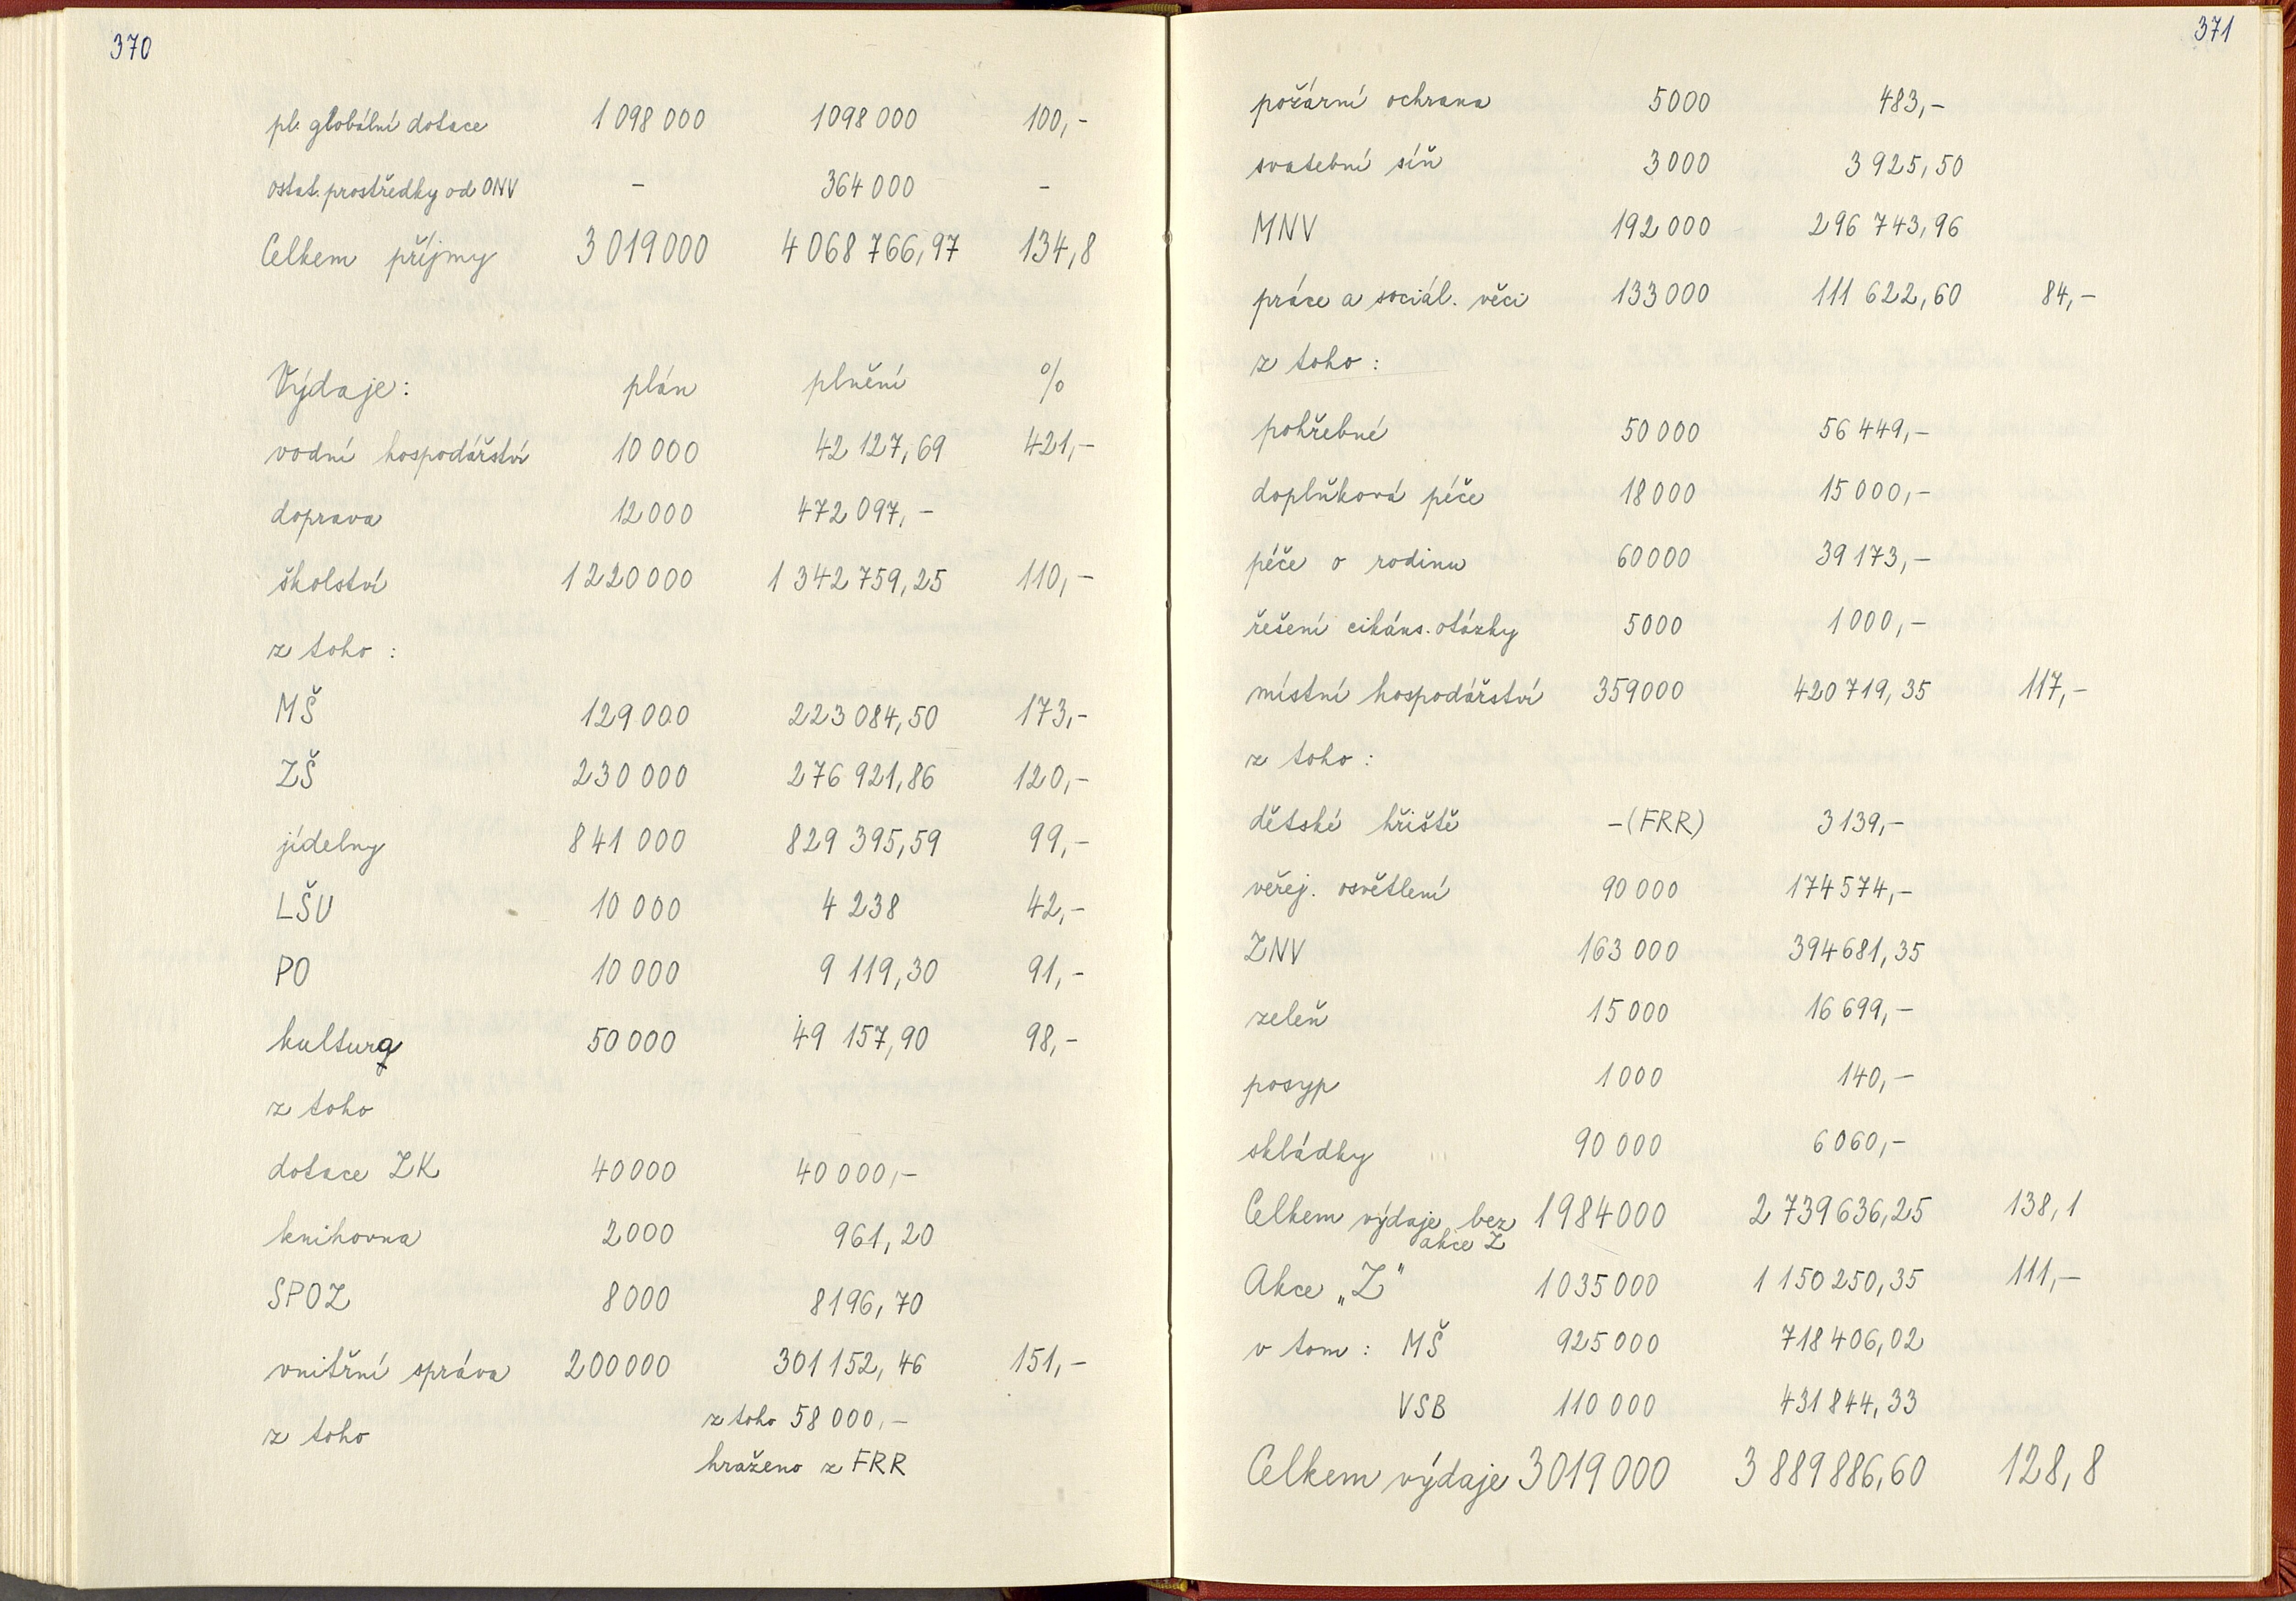 370
pl. globální dotace 1 098 000 1098 000 100,-
ostat. prostředky od ONV - 364 000 -
Celkem příjmy 3 019 000 4 068 766,97 134,8
Výdaje: plán plnění %
vodní hospodářství 10 000 42 127,69 421,-
doprava 12 000 472 097,-
školství 1 220 000 1 342 759,25 110,-
z toho :
MŠ 129 000 223 084,50 173,-
ZŠ 230 000 276 921,86 120,-
jídelny 841 000 829 395,59 99,-
LŠU 10 000 4 238 42,-
PO 10 000 9 119,30 91,-
kultura 50 000 49 157,90 98,-
z toho
dotace ZK 40 000 40 000,-
knihovna 2000 961,20
SPOZ 8000 8196,70
vnitřní správa 200 000 301 152,46 151,-
z toho z toho 58 000,-
hraženo z FRR
371
požární ochrana 5000 483,-
svatební síň 3000 3 925,50
MNV 192 000 296 743,96
práce a sociál. věci 133 000 111 622,60 84,-
z toho :
pohřebné 50 000 56 449,-
doplňková péče 18 000 15 000,-
péče o rodinu 60 000 39 173,-
řešení cikáns. otázky 5000 1 000,-
místní hospodářství 359000 420 719,35 117,-
z toho :
dětské hřiště -(FRR) 3 139,-
veřej. osvětlení 90 000 174 574,-
ZNV 163 000 394 681,35
zeleň 15 000 16 699,-
posyp 1000 140,-
skládky 90 000 6 060,-
Celkem výdaje bez 1984000 2 739 636,25 138,1
akce Z
Akce „Z" 1 035 000 1 150 250,35 111,-
v tom : MŠ 925 000 718 406,02
VSB 110 000 431 844,33
Celkem výdaje 3 019 000 3 889 886,60 128,8